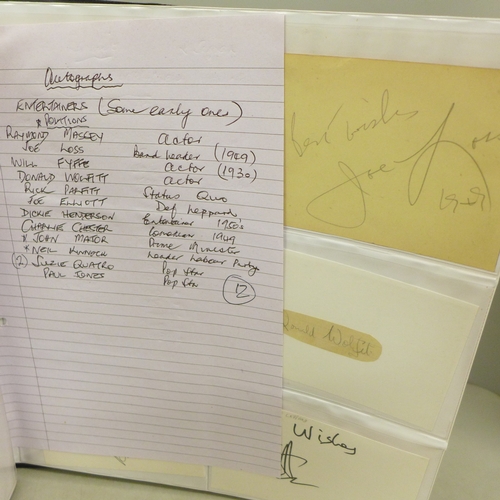 Autographs
ENTERTAINERS (Some early ones)
& POLITIONS
RAYMOND MASSEY Actor
JOE LOSS Band Leader (1949)
WILL FYFFE Actor (1930)
DONALD WOLFITT Actor
RICK PARFITT Status Quo
JOE ELLIOTT Def Leppard
DICKIE HENDERSON Entertainer 1950s
CHARLIE CHESTER Comedian 1949
* JOHN MAJOR Prime Minister
* NEIL KINNOCK Leader Labour Party
(2) SUZIE QUATRO Pop Star
PAUL JONES Pop Star
12
Best wishes
Joe Loss
1949
Donald Wolfit
Wishes